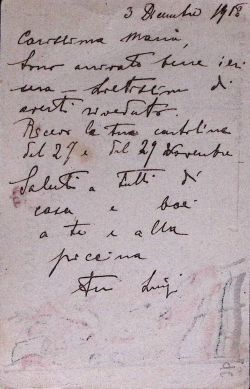 3 Dicembre 1918
Carissima Maria,
Sono arrivato bene ieri
sera - di
averti riveduto.
Ricevo la tua cartolina
del 27 e del 29 Novembre
Saluti a tutti di
casa e baci
a te e alla
piccina
Luigi